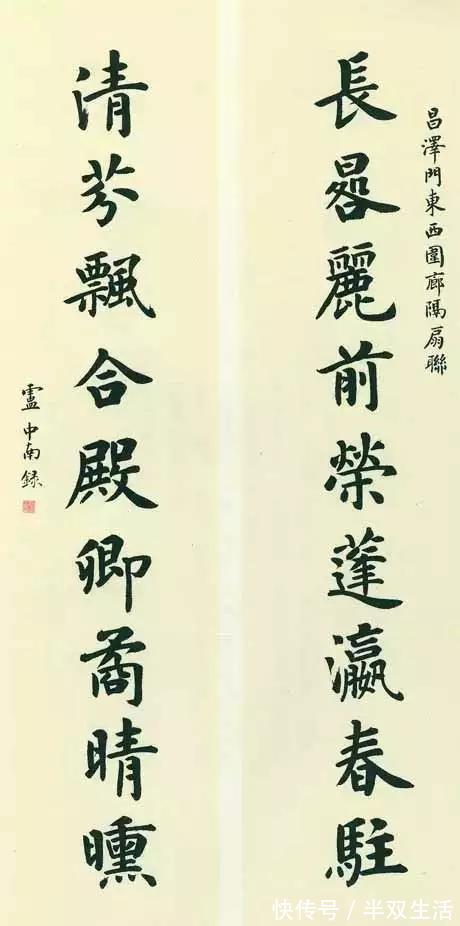 昌澤門東西圍廊隔扇聯
長晷麗前榮蓬瀛春駐
清芬飄合殿卿矞晴曛
盧中南録
快传号/半双生活